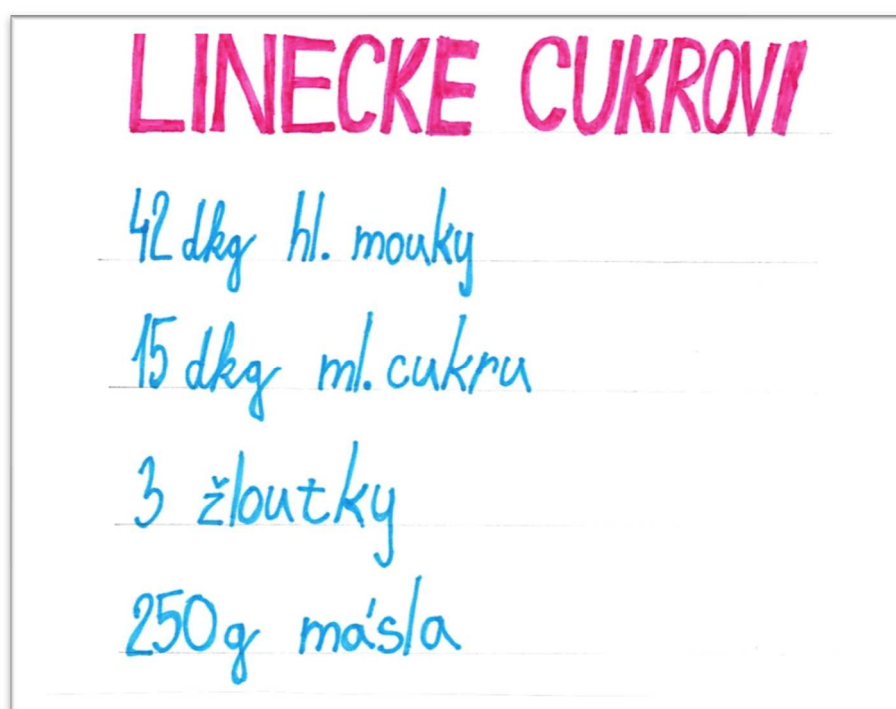 LINECKE CUKROVI
42 dkg hl. mouky
15 dkg ml. cukru
3 žloutky
250g másla